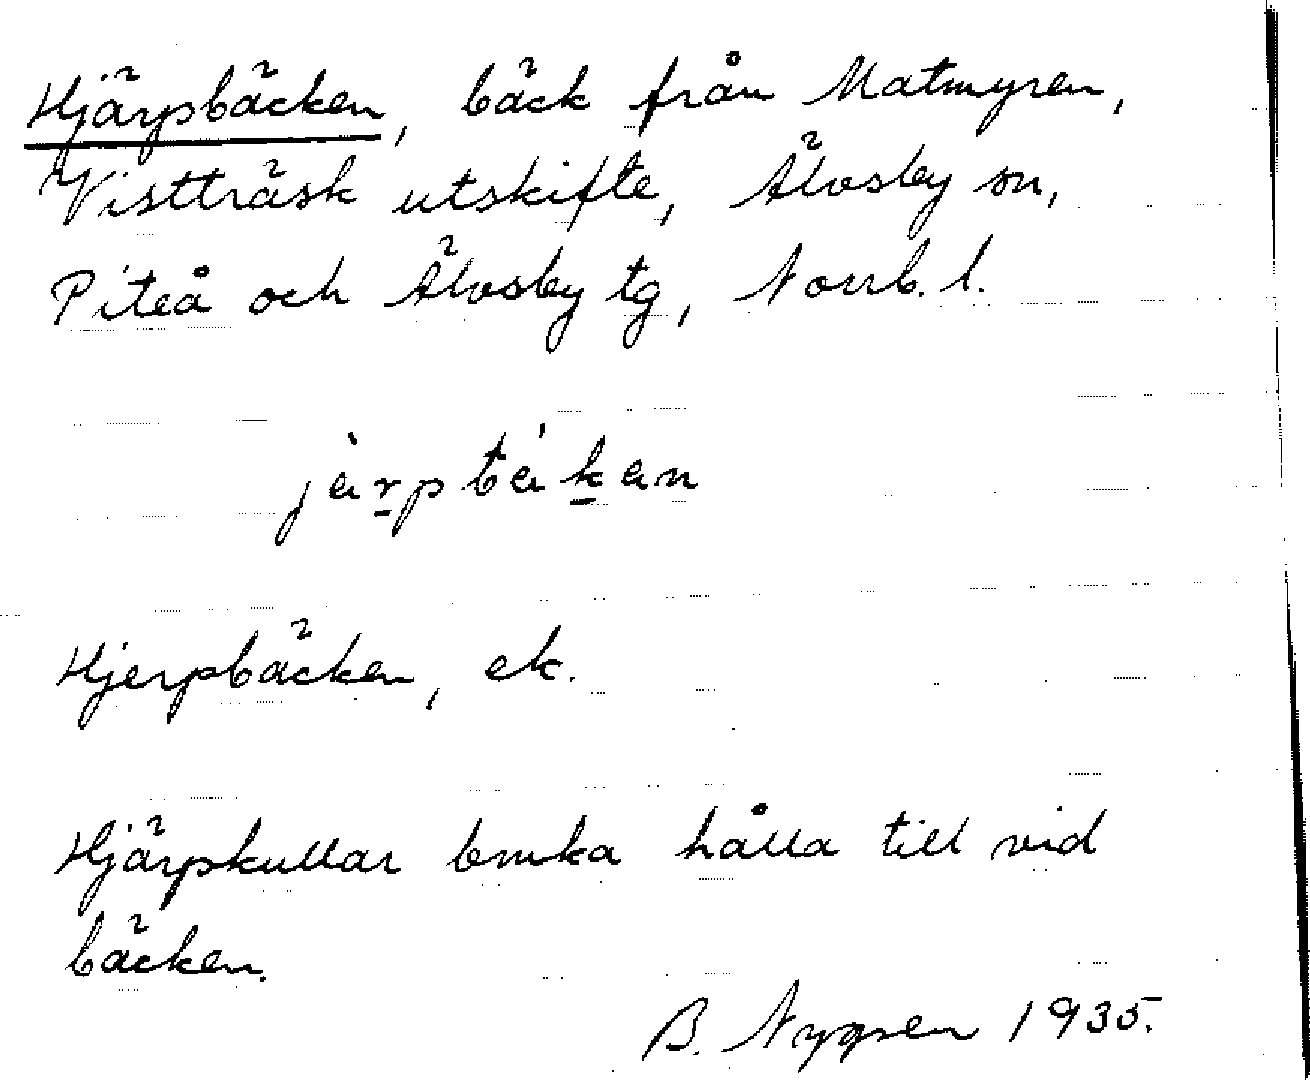 Hjärpbäcken, bäck från Matmyren,
Vistträsk utskifte, Älvsby sn,
Piteå och Älvsby tg, Norrb. l.
Hjerpbäcken, ek.
Hjärpkullar bruka hålla till vid
bäcken.
B. Nygren 1935.